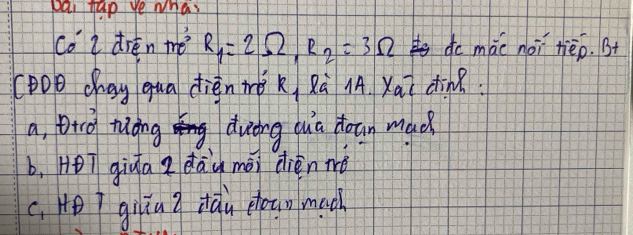 Bài tập về nhà:
Có 2 điện trở R₁ = 2Ω, R₂ = 3Ω đc mắc nối tiếp. Bt
CĐDĐ chạy qua điện trở R₁ là 1A. Xác định:
a, Đtrở tương đương của đoạn mạch
b, HĐT giữa 2 đầu mỗi điện trở
c, HĐT giữa 2 đầu đoạn mạch